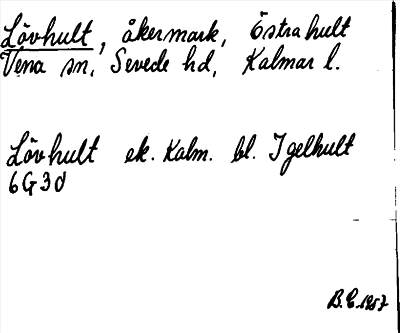 Lövhult, åkermark, Östrahult
Vena sn, Sevede hd, Kalmar l.
Lövhult ek. Kalm. bl. Igelhult
6G3d
B.E. 1957